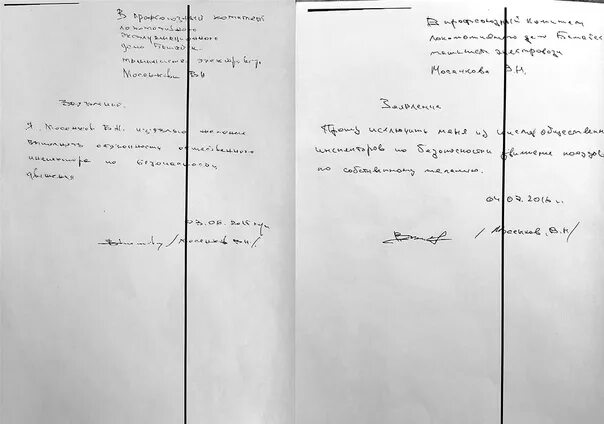 В профсоюзный комитет
локомотивного
эксплуатационного
депо Батайск
машиниста электровоза
Мосенкова В.Н.
Заявление.
Я, Мосенков В.Н. изъявляю желание
выполнять обязанность общественного
инспектора по безопасности
движения
03.06.2015 года
/Мосенков В.Н/
В профсоюзный комитет
локомотивного депо Батайск
машиниста электровоза
Мосенкова В.Н.
Заявление
Прошу исключить меня из числа общественн
инспекторов по безопасности движение поездов
по собственному желанию.
04.07.2016 г.
/Мосенков. В.Н/